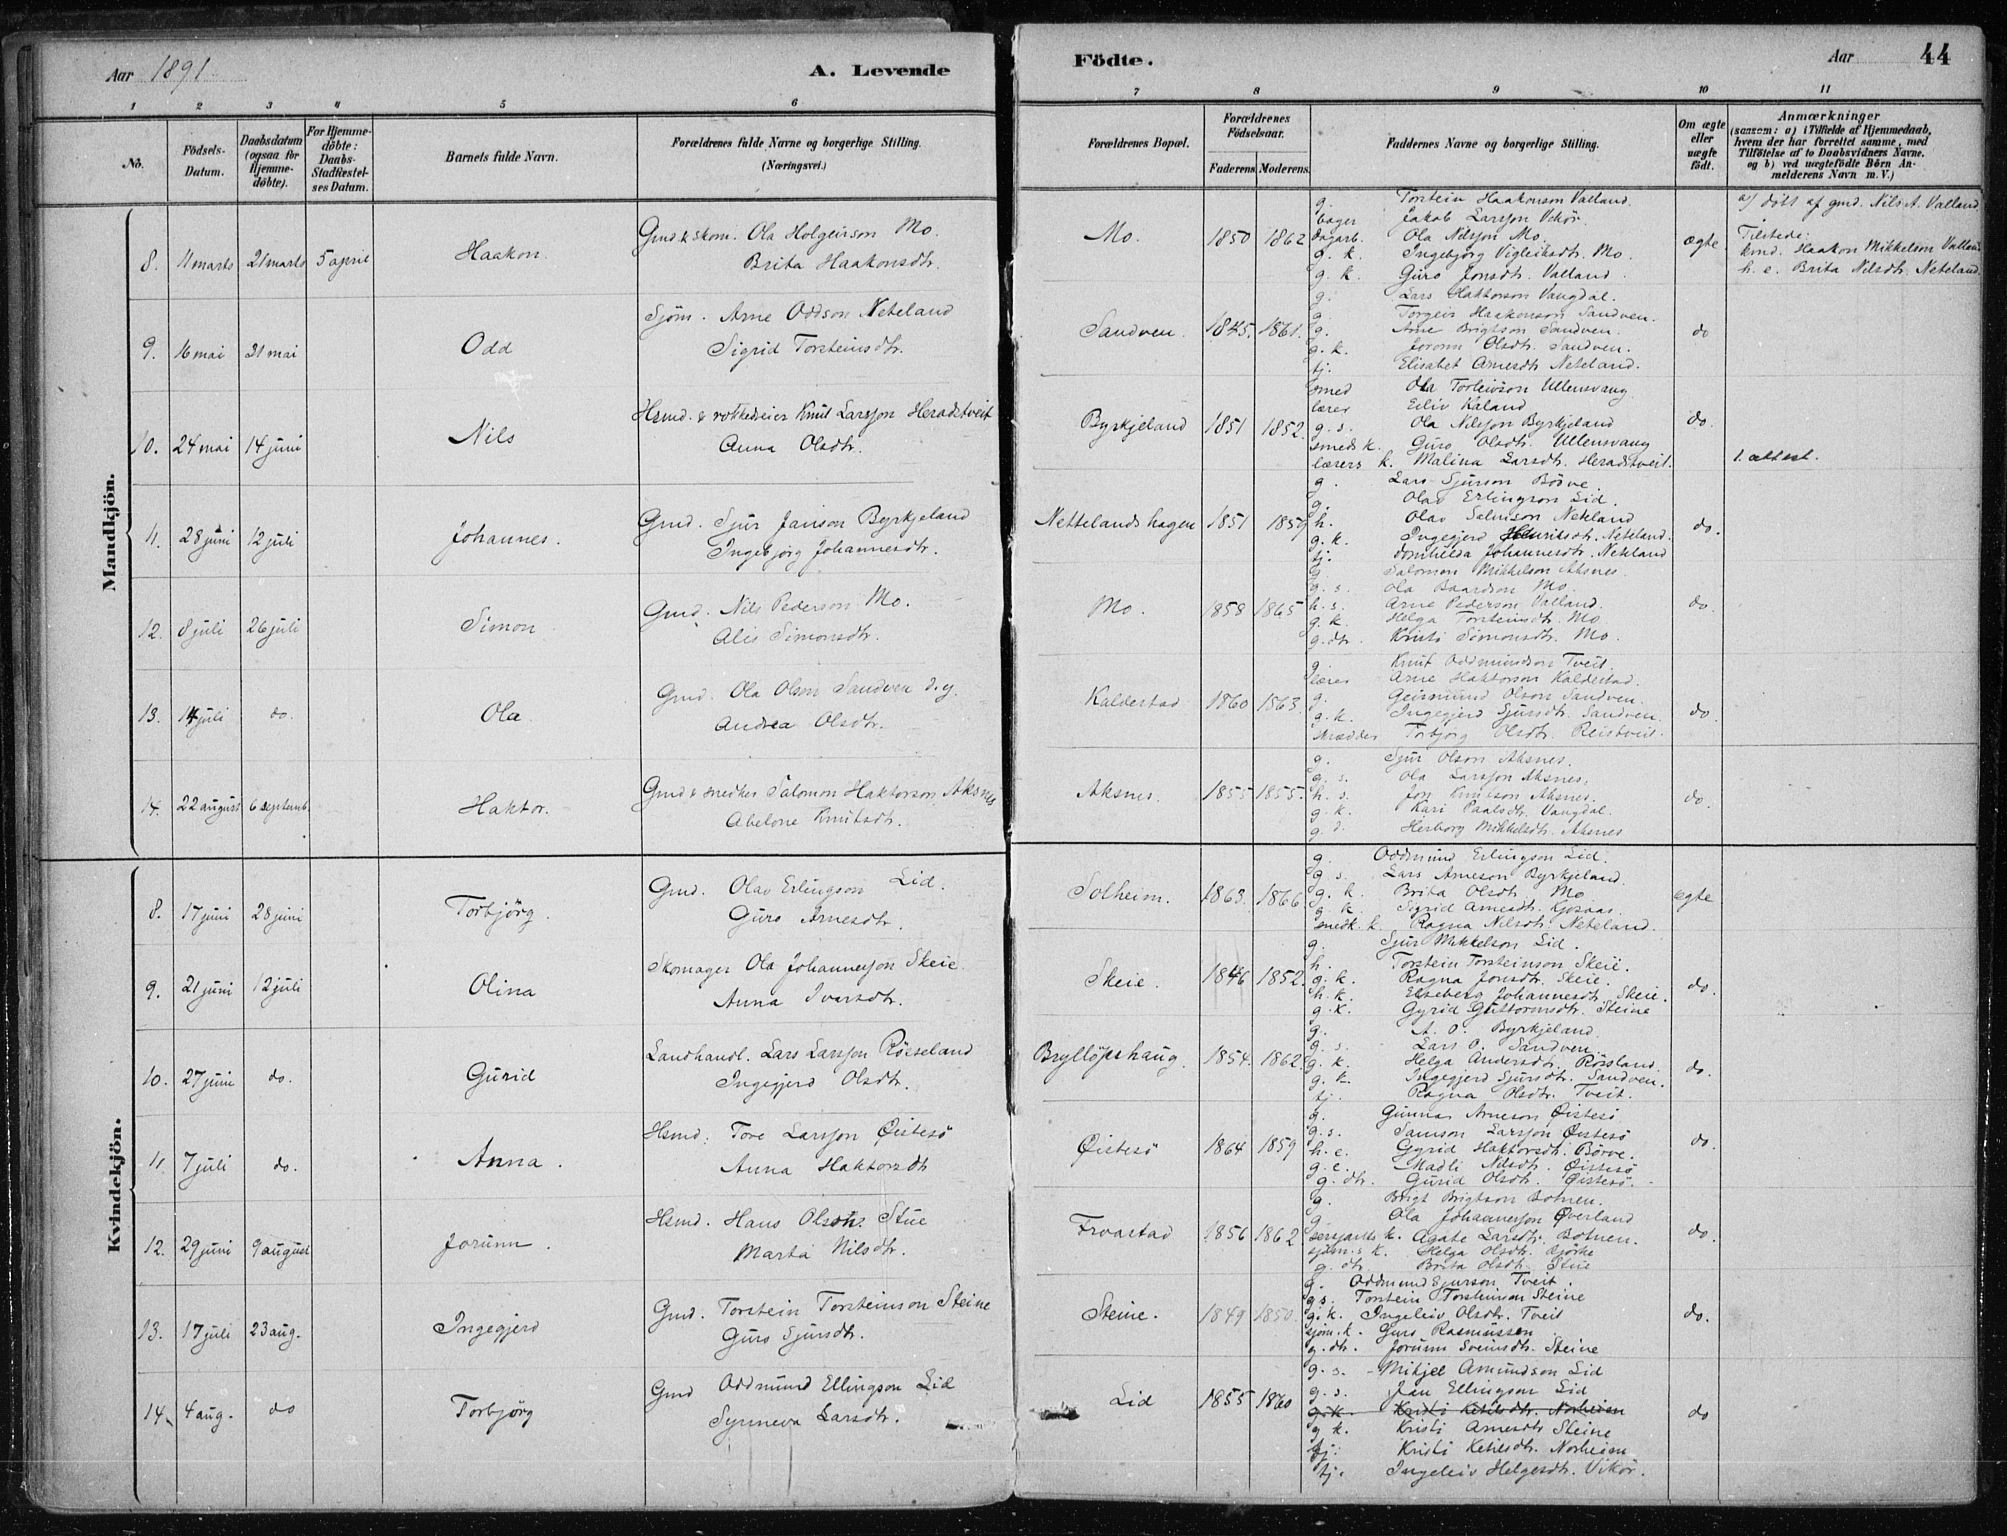 Aar 1891
A. Levende
Födte.
Aar
44
1 2 3 4 5 6 7 8 9 10 11
No.
Födsels-Datum.
Daabsdatum (ogsaa for Hjemme-döbte).
For Hjemme-döbte: Daabs-Stadfæstel-ses Datum.
Barnets fulde Navn.
Forældrenes fulde Navne og borgerlige Stilling.
(Næringsvei.)
Forældrenes Bopæl.
Forældrenes Födselsaar.
Faderens. Moderens.
Faddernes Navne og borgerlige Stilling.
Om ægte eller uægte födt.
Anmærkninger
(saasom: a) i Tilfælde af Hjemmedaab, hvem der har forrettet samme, med Tilföielse af to Daabsvidners Navne. og b) ved uægtefödte Börn An-melderens Navn m. V.)
Mandkjön.
8. 11 marts 21 marts 5 april Haakon. Gmd. & skom. Ola Holgeirson Mo.
Brita Haakonsdtr.
Mo. 1850 1862 ægte
g. Torstein Haakonson Valland.
bager Jakob Larsson Vikör.
dagarb. Ola Nilsson Mo.
g. k. Ingebjörg Vigleiksdtr. Mo.
g. k. Guro Jonsdtr. Valland.
a) döbt af gmd. Nils A. Valland.
Tilstede:
kmd. Haakon Mikkelson Valland
h. e. Brita Nilsdtr. Neteland.
9. 16 mai 31 mai Odd Sjöm. Arne Oddson Neteland
Sigrid Torsteinsdtr.
Sandven. 1845. 1861. do
g. Lars Haktorson Vangdal.
g. Torgeir Haakonson Sandven.
g. Arne Brigtson Sandven.
g. k. Jorunn Olsdtr. Sandven.
tj. Elisabet Arnesdtr Neteland.
10. 24 mai 14 juni Nils Hsmd. & rokkedreier Knut Larsson Heradstveit
Anna Olsdtr.
Byrkjeland 1851 1852. do.
smed Ola Torleivson Ullensvang
lærer Eiliv Kaland
g. s. Ola Nilsson Byrkjeland
smeds k. Guro Olsdtr. Ullensvang
lærers k. Malina Larsdtr. Heradstveit.
1. attest.
11. 28 juni 12 juli Johannes. Gmd. Sjur Janson Byrkjeland
Ingebjörg Johannesdtr.
Nettelandshagen 1851 1859 do.
g. Lars Sjurson Börve.
g. Olav Erlingson Lid.
h. Olav Salmison Neteland
g. k. Ingegjerd Henriksdtr. Neteland.
tj. Domhilda Johannesdtr. Neteland
12. 8 juli 26 juli Simon Gmd. Nils Pederson Mo.
Alis Simonsdtr.
Mo. 1858 1865 do.
g. Salomon Mikkelson Aksnes.
g. s. Ola Baardson Mo.
h. s. Arne Pederson Valland.
g. k. Helga Torsteinsdtr. Mo
g. dtr. Kristi Simonsdtr. Mo.
13. 14 juli do. Ola Gmd. Ola Olson Sandven d. y.
Andrea Olsdtr.
Kaldestad 1860 1863. do.
g. Knut Oddmundson Tveit.
lærer Arne Haktorson Kaldestad.
g. Geirmund Olson Sandven.
g. k. Ingegjerd Sjursdtr. Sandven.
skrædder Torbjörg Olsdtr. Reistveit.
14. 22 august 6 septemb. Haktor. Gmd & snedker Salomon Haktorson Aksnes
Abelone Knutsdtr.
Aksnes. 1855 1855. do.
g. Sjur Olson Aksnes.
g. s. Ola Larsson Aksnes.
h. s. Jon Knutson Aksnes.
g. k. Kari Paalsdtr. Vangdal.
g. d. Herborg Mikkelsdtr. Aksnes
Kvindekjön.
8. 17 juni 28 juni Torbjörg. Gmd. Olav Erlingson Lid.
Guro Arnesdtr.
Solheim. 1863. 1866 ægte
g. Oddmund Erlingson Lid.
g. s. Lars Arneson Byrkjeland.
g. k. Brita Olsdtr. Mo
g. k. Sigrid Arnesdtr. Kjosaas.
snedk. k. Ragna Nilsdtr. Neteland.
9. 21 juni 12 juli Olina Skomager Ola Johannesson Skeie.
Anna Ivarsdtr.
Skeie. 1846 1852. do.
g. Sjur Mikkelson Lid.
h. Torstein Torsteinson Skeie.
g. k. Ragna Jonsdtr. Skeie.
h. k. Elseberg Johannesdtr. Skeie.
g. k. Gyrid Guttormsdtr. Steine
10. 27 juni do. Gurid Landhandl. Lars Larsson Röseland
Ingegjerd Olsdtr.
Bryllöpshaug. 1854. 1862. do.
g. A. O. Byrkjeland
g. s. Lars O. Sandven.
g. k. Helga Andersdtr. Rössland.
g. k. Ingegjerd Sjursdtr. Sandven.
tj. Ragna Olsdtr. Tveit.
11. 7 juli do. Anna. Hsmd. Tore Larsson Öistesö
Anna Haktorsdtr
Öistesö 1864 1859 do
g. Gunnar Arneson Öistesö
g. s. Samson Larsson Öistesö
h. e. Gyrid Haktorsdtr. Börve.
g. e. Madli Nilsdtr. Öistesö
g. dtr. Gurid Olsdtr. Öistesö.
12. 29 juni 9 august Jorunn. Hsmd. Hans Olson Stue
Marta Nilsdtr.
Froastad 1856 1862 do.
g. Brigt Brigtson Botnen.
g. Ola Johannesson Överland
sersjants k. Agate Larsdtr. Botnen.
sjöm.s k. Helga Olsdtr. Björke
g. dtr. Brita Olsdtr. Stue
13. 17 juli 23 aug. Ingegjerd Gmd. Torstein Torsteinson Steine
Guro Sjursdtr.
Steine. 1849 1850. do.
g. Oddmund Sjurson Tveit.
g. s. Torstein Torsteinson Steine
g. k. Ingeleiv Olsdtr. Tveit
sjöm. k. Guro Rasmussen
g. dtr. Jorunn Sveinsdtr. Steine
14. 4 aug. do Torbjörg Gmd Oddmund Ellingson Lid
Synneva Larsdtr.
Lid 1855 1860 do
g. s. Mikjel Amundson Lid
g. s. Jan Ellingson Lid
g. k. Kristi Ketilsdtr. Norheim
g k. Kristi Arnesdtr Steine
tj. Kristi Ketilsdtr. Norheim
tj. Ingeleiv Helgesdtr. Vikör.